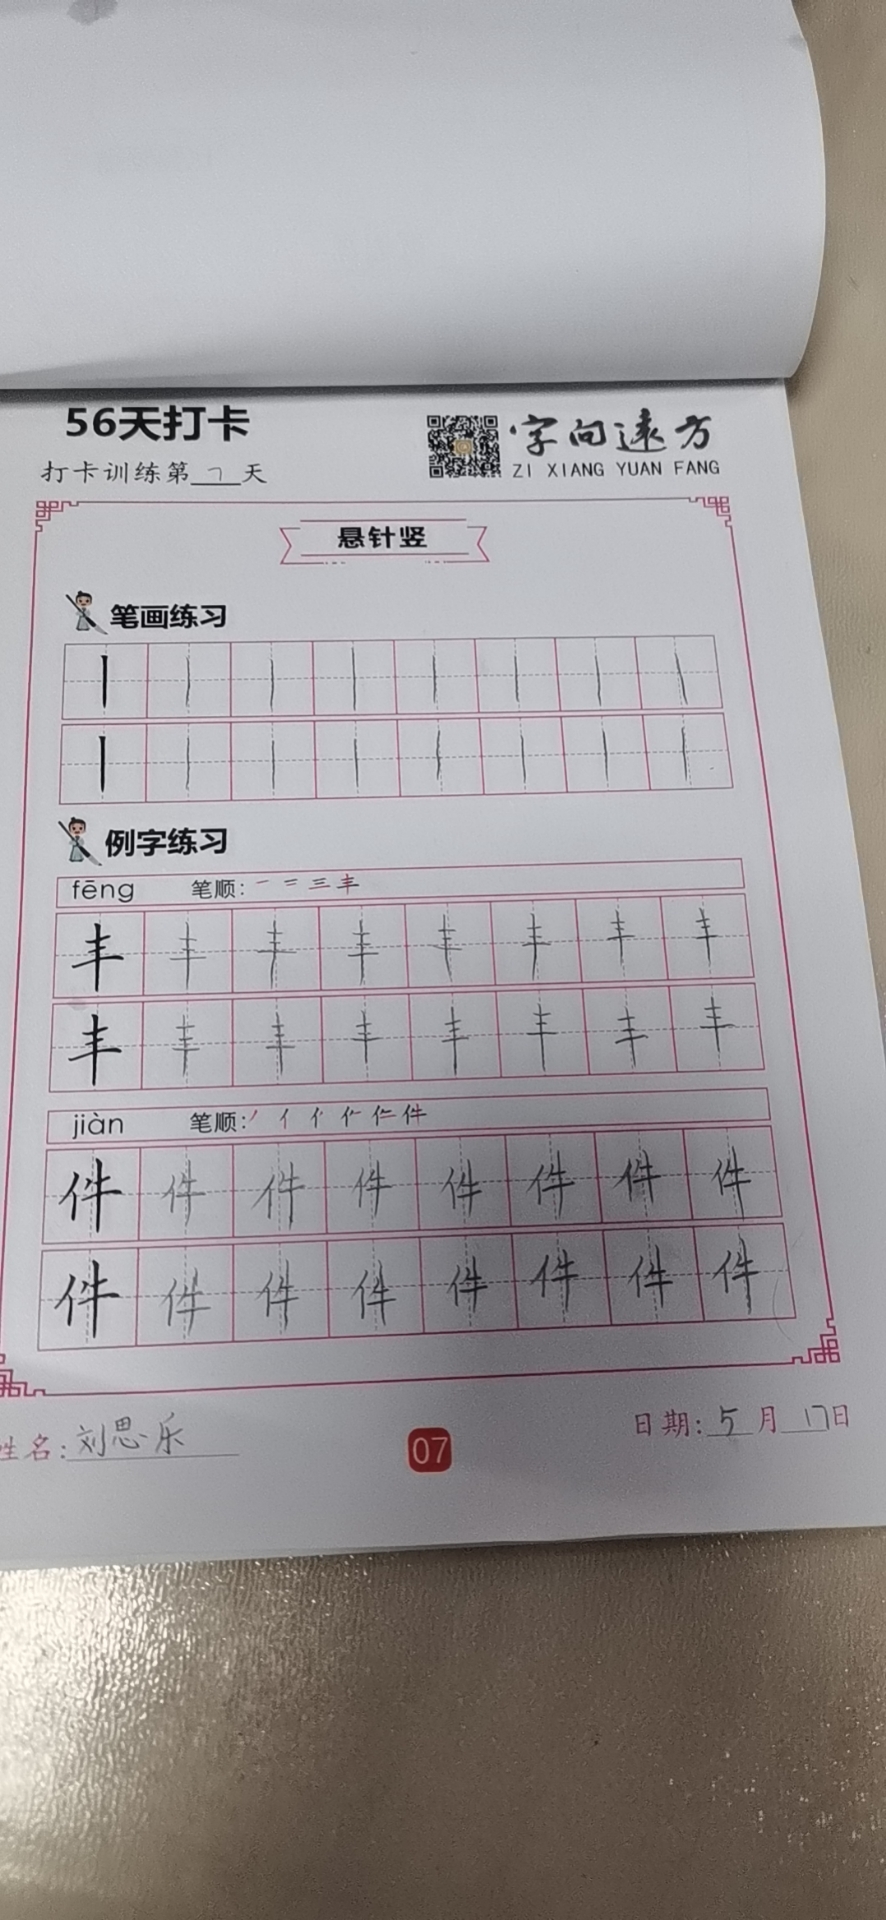 56天打卡
打卡训练第7天
字向远方
ZI XIANG YUAN FANG
悬针竖
笔画练习
丨丨丨丨丨丨丨丨
丨丨丨丨丨丨丨丨
例字练习
fēng 笔顺: 一 二 三 丰
丰丰丰丰丰丰丰丰
丰丰丰丰丰丰丰丰
jiàn 笔顺: 丿 亻 亻 仁 件
件件件件件件件件
件件件件件件件件
姓名:刘思乐
07
日期:5月17日